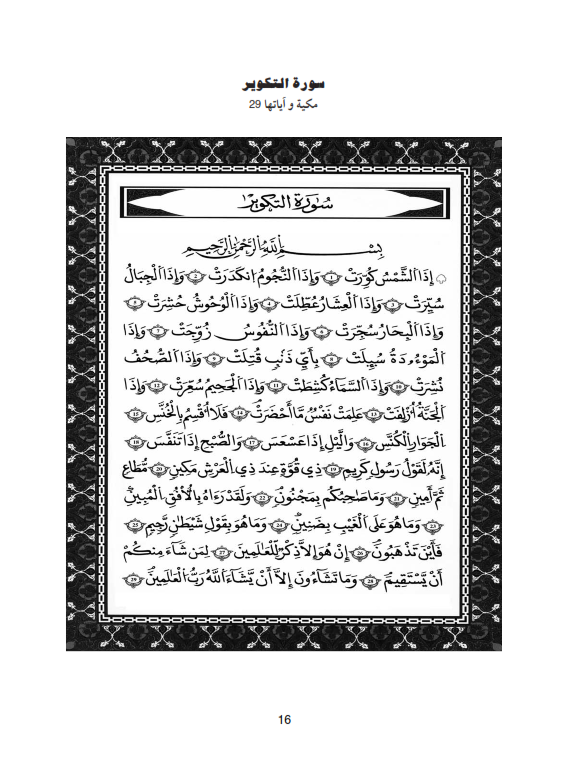 سورة التكوير
مكية و آياتها 29
سُورَةُ التَّكْوِيرِ
بِسْمِ اللَّهِ الرَّحْمَٰنِ الرَّحِيمِ
إِذَا الشَّمْسُ كُوِّرَتْ 1 وَإِذَا النُّجُومُ انكَدَرَتْ 2 وَإِذَا الْجِبَالُ
سُيِّرَتْ 3 وَإِذَا الْعِشَارُ عُطِّلَتْ 4 وَإِذَا الْوُحُوشُ حُشِرَتْ 5
وَإِذَا الْبِحَارُ سُجِّرَتْ 6 وَإِذَا النُّفُوسُ زُوِّجَتْ 7 وَإِذَا
الْمَوْءُودَةُ سُئِلَتْ 8 بِأَيِّ ذَنۢبٍ قُتِلَتْ 9 وَإِذَا الصُّحُفُ
نُشِرَتْ 10 وَإِذَا السَّمَاءُ كُشِطَتْ 11 وَإِذَا الْجَحِيمُ سُعِّرَتْ 12 وَإِذَا
الْجَنَّةُ أُزْلِفَتْ 13 عَلِمَتْ نَفْسٌ مَّا أَحْضَرَتْ 14 فَلَا أُقْسِمُ بِالْخُنَّسِ 15
الْجَوَارِ الْكُنَّسِ 16 وَالَّيْلِ إِذَا عَسْعَسَ 17 وَالصُّبْحِ إِذَا تَنَفَّسَ 18
إِنَّهُ لَقَوْلُ رَسُولٍ كَرِيمٍ 19 ذِي قُوَّةٍ عِندَ ذِي الْعَرْشِ مَكِينٍ 20 مُّطَاعٍ
ثَمَّ أَمِينٍ 21 وَمَا صَاحِبُكُم بِمَجْنُونٍ 22 وَلَقَدْ رَءَاهُ بِالْأُفُقِ الْمُبِينِ
23 وَمَا هُوَ عَلَى الْغَيْبِ بِضَنِينٍ 24 وَمَا هُوَ بِقَوْلِ شَيْطَٰنٍ رَّجِيمٍ 25
فَأَيْنَ تَذْهَبُونَ 26 إِنْ هُوَ إِلَّا ذِكْرٌ لِّلْعَٰلَمِينَ 27 لِمَن شَاءَ مِنكُمْ
أَن يَسْتَقِيمَ 28 وَمَا تَشَاءُونَ إِلَّا أَن يَشَاءَ اللَّهُ رَبُّ الْعَٰلَمِينَ 29
16